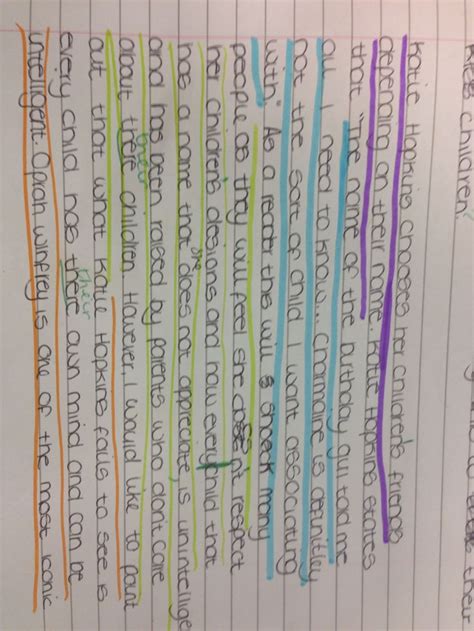 Katie Hopkins chooses her children's friends
depending on their name. Katie Hopkins states
that "The name of the birthday gui told me
all I need to know... Charmaine is definitley
not the sort of child I want associating
with." As a reader this will shock many
people as they will feel she doesn't respect
her children's desions and how every child that
has a name that she does not appreciate, is unintellige
and has been raised by parents who dont care
about there their children. However, I would like to point
out that what Katie Hopkins fails to see is
every child has there their own mind and can be
intelligent. Oprah Winfrey is one of the most iconic